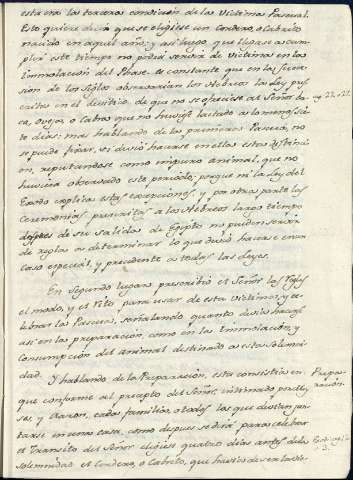 esta era la tercera condicion de la Victima Pascual.
Esto quiere decir que se eligiese un Cordero, o Cabrito
nacido en aquel año; y asi luego que llegase a cum-
plir este tiempo no podia servir de Victima en la
Inmolacion del Phase. Es constante que en la succe-
sion de los siglos observarian los Hebreos la Ley pres-
crita en el Levitico de que no se ofreciese al Señor ba-
ca, oveja, o Cabra que no huviese lactado a lo menos sie-
te dias; mas hablando de la primera Pascua, no
se puede fixar, si devió hacerse en ella esta distincion
en, reputandose como impuro animal, que no
huviera observado este periodo; porque ni la Ley del
Exodo explica esta excepcion, y por otra parte las
Ceremonias prescritas a los Hebreos largo tiempo
despues de su salida de Egipto no pueden servir
de regla a determinar lo que devió hacerse en un
caso especial, y precedente a todas las Leyes.
En Segundo lugar prescribió el Señor las Reglas
el modo, y el Rito para usar de esta victima, y ce-
lebrar la Pascua, señalando quanto devia hacerse
asi en la preparacion, como en la Inmolacion, y
Consumpcion del animal destinado a esta Solemni-
dad.
Y hablando de la Preparacion, esta consistia en Prepa-
que conforme al precepto del Señor, intimado por Moy- racion.
ses, y Aaron, cada familia, o todos los que devian jun-
tarse en una casa, como despues se dirá para celebrar
el Transito del Señor eligiese quatro dias antes de la
solemnidad el Cordero, o Cabrito, que havia de ser la Vic-